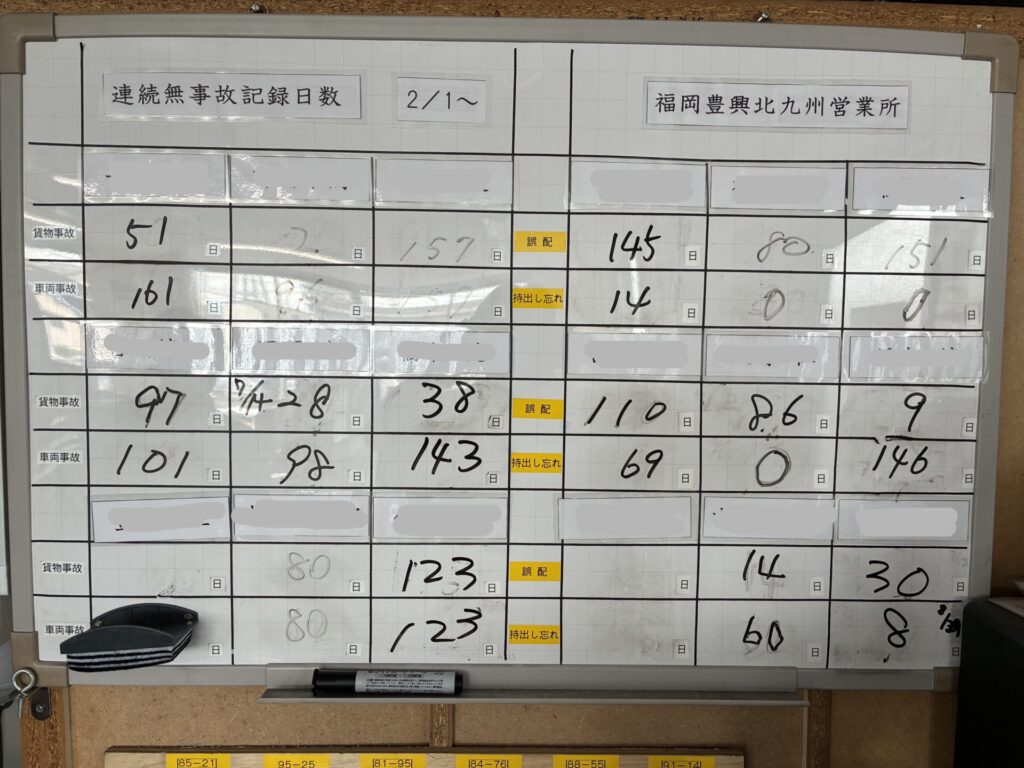 連続無事故記録日数 2/1～ 福岡豊興北九州営業所
貨物事故 51日 2日 157日 誤配 145日 80日 151日
車両事故 161日 日 日 持出し忘れ 14日 0日 0日
貨物事故 97日 28日 38日 誤配 110日 86日 9日
車両事故 101日 98日 143日 持出し忘れ 69日 0日 146日
貨物事故 日 80日 123日 誤配 日 14日 30日
車両事故 日 80日 123日 持出し忘れ 日 60日 8日
85-21 95-25 81-95 84-76 88-55 91-14